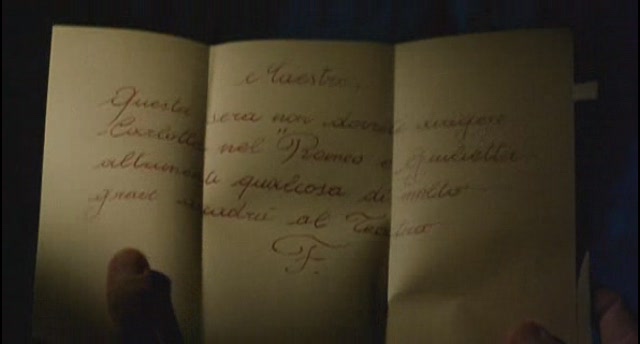 Maestro,
Questa sera non dovrete
Carlotta nel "Romeo e Giulietta
altrimenti qualcosa di molto
grave accadrà al Teatro
F.